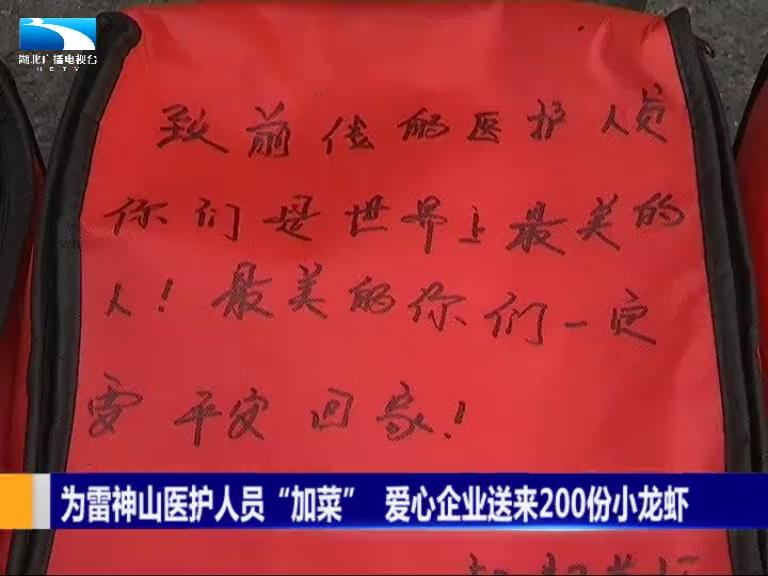 湖北广播电视台
HBTV
致前线的医护人员
你们是世界上最美的
人！最美的你们一定
要平安回家！
为雷神山医护人员“加菜” 爱心企业送来200份小龙虾